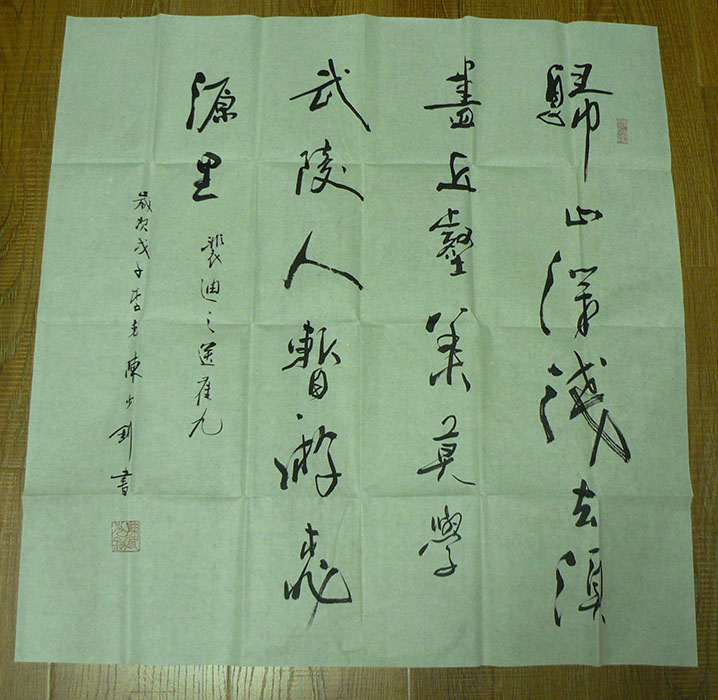 歸山深淺去須
盡丘壑美莫學
武陵人暫游桃
源里 裴迪之送崔九
歲次戊子陳少釗書